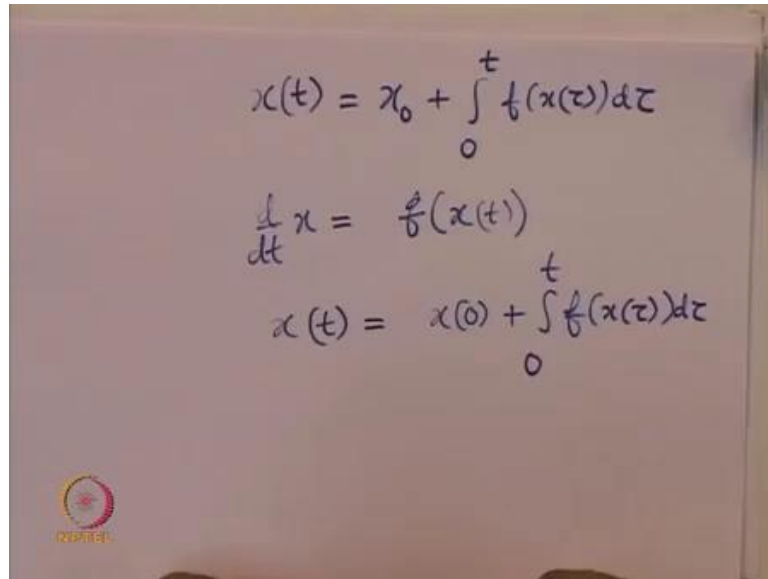 x(t) = x₀ + ∫₀ᵗ f(x(τ))dτ
d/dt x = f(x(t))
x(t) = x(0) + ∫₀ᵗ f(x(τ))dτ
NPTEL